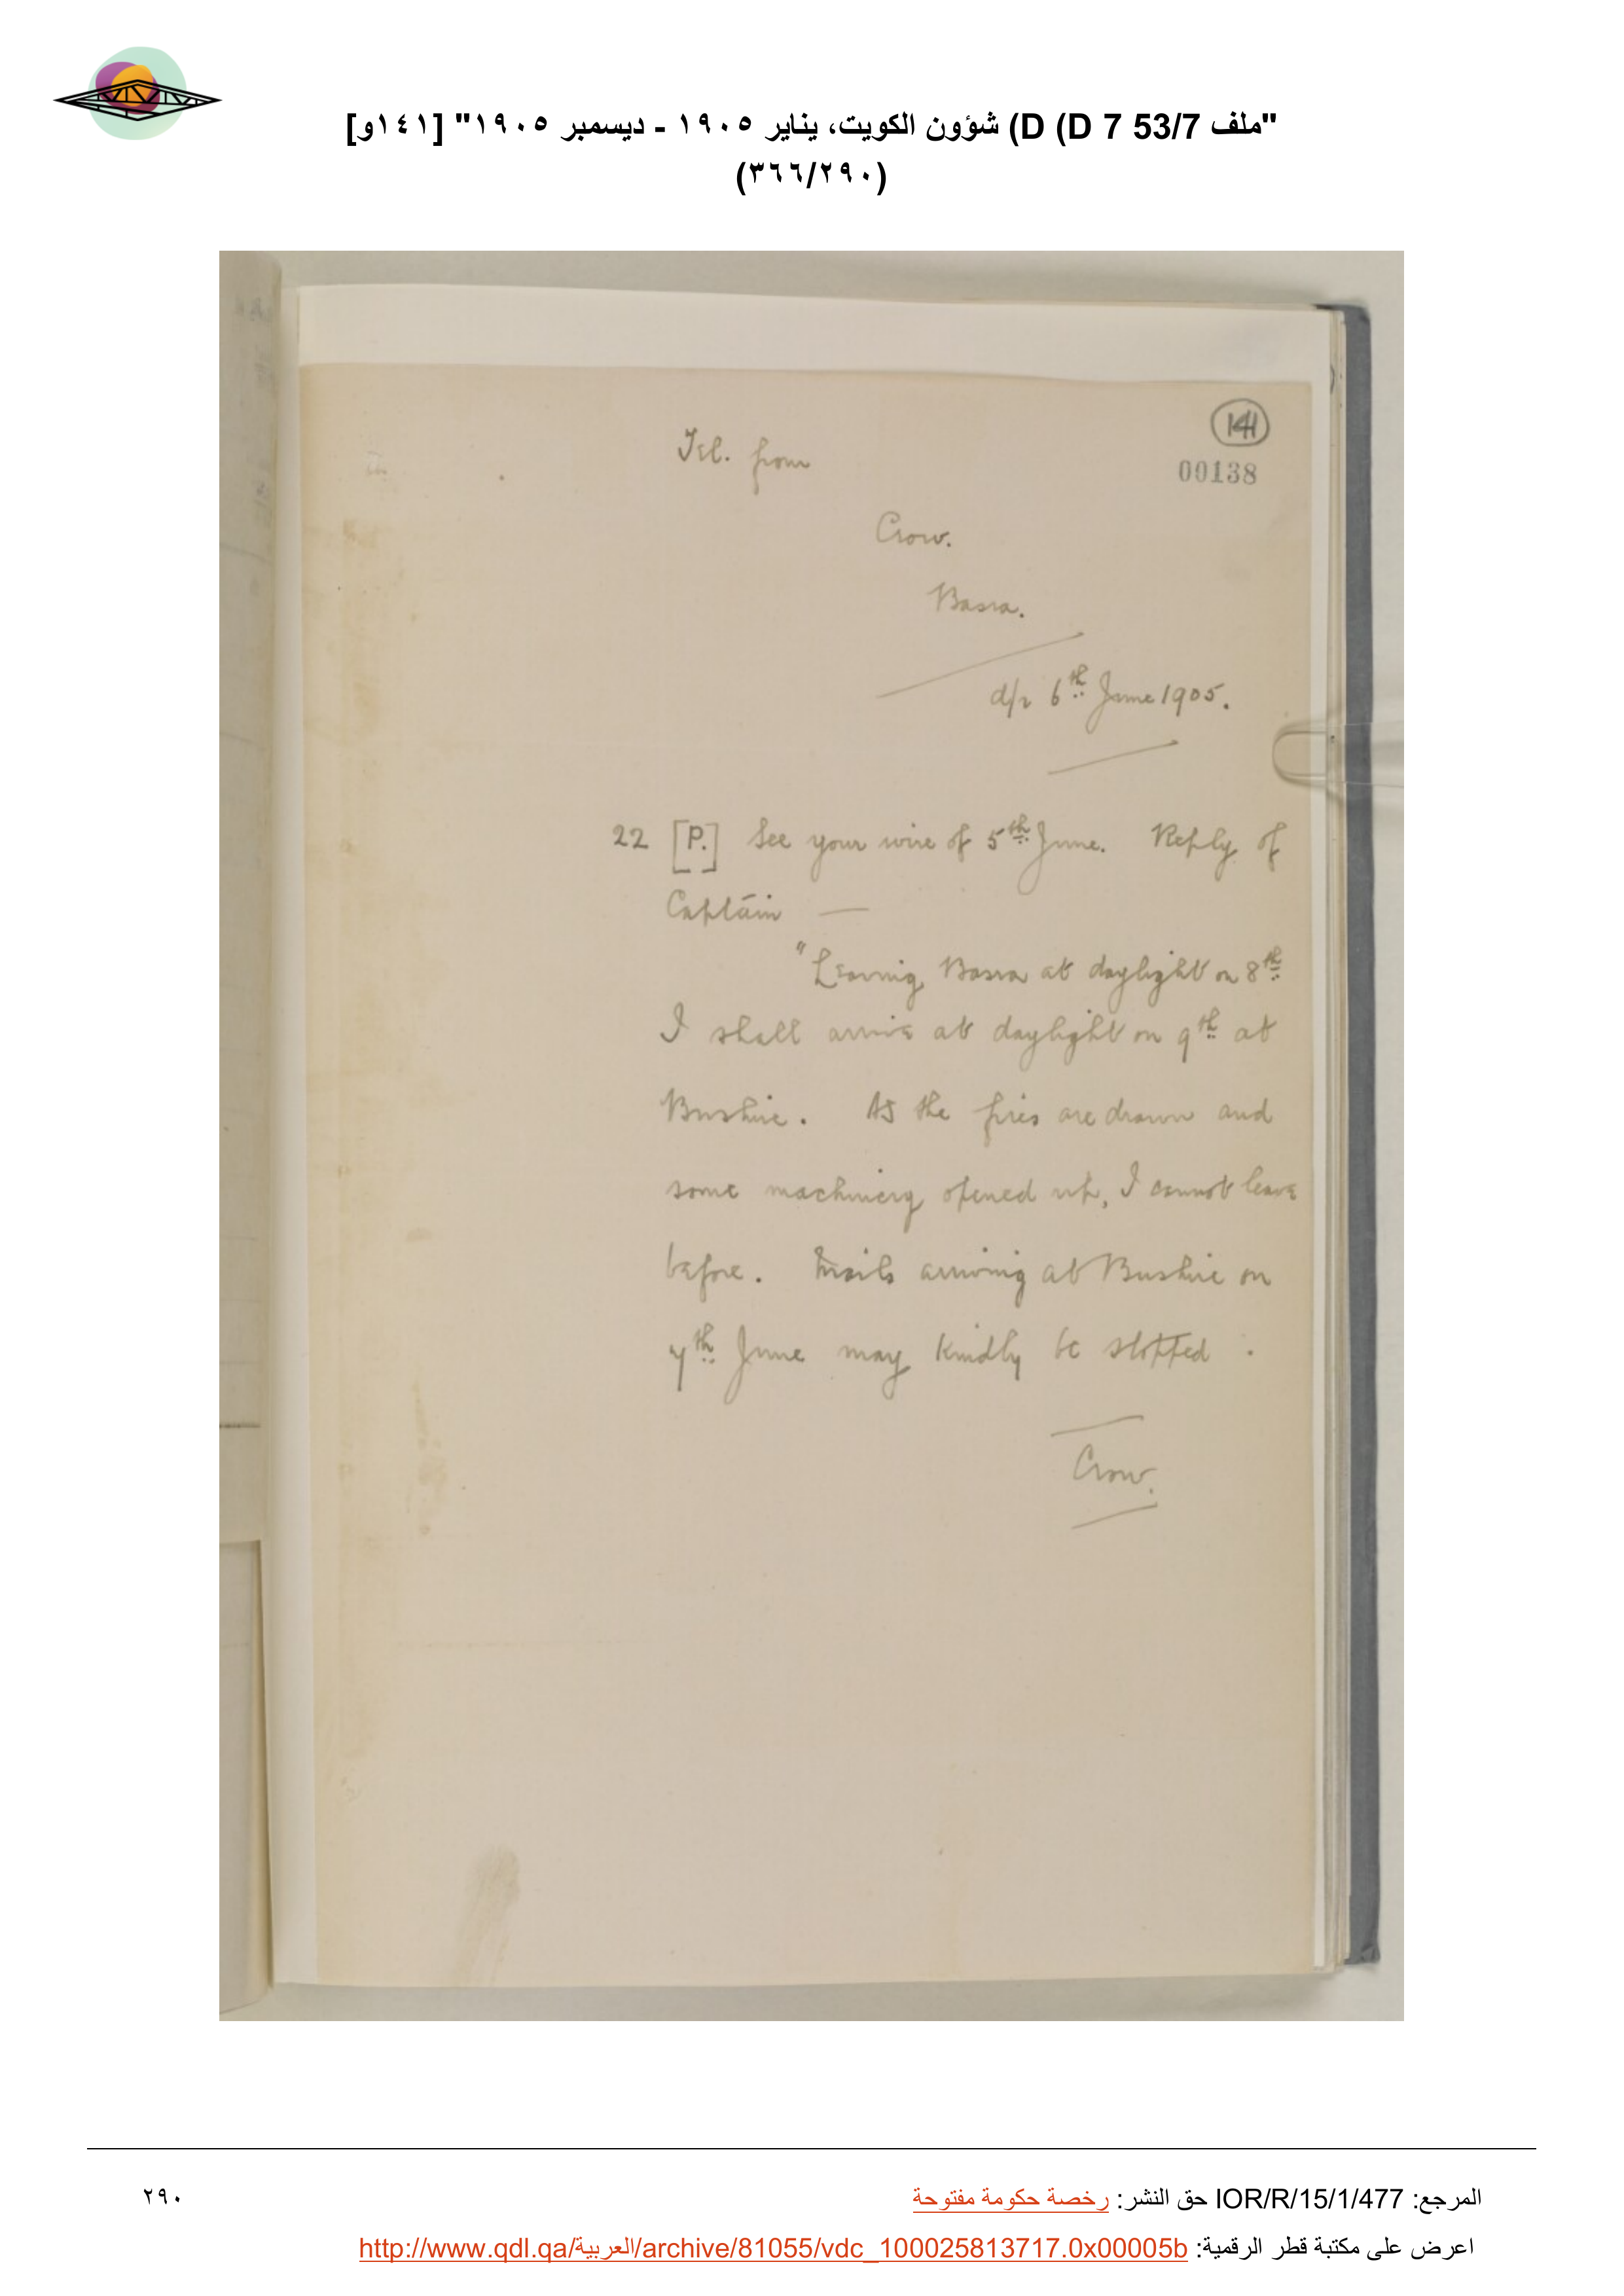 "ملف 53/7 D (D 7) شؤون الكويت، يناير ١٩٠٥ - ديسمبر ١٩٠٥" [١٤١و]
(٣٦٦/٢٩٠)
141
00138
Tel. from
Crow.
Basra.
d/r 6th June 1905.
22 [P.] See your wire of 5th June. Reply of
Captain —
"Leaving Basra at daylight on 8th
I shall arrive at daylight on 9th at
Bushire. As the fires are drawn and
some machinery opened up, I cannot leave
before. Mails arriving at Bushire on
7th June may kindly be stopped.
Crow.
المرجع: IOR/R/15/1/477 حق النشر: رخصة حكومة مفتوحة
٢٩٠
اعرض على مكتبة قطر الرقمية: http://www.qdl.qa/العربية/archive/81055/vdc_100025813717.0x00005b